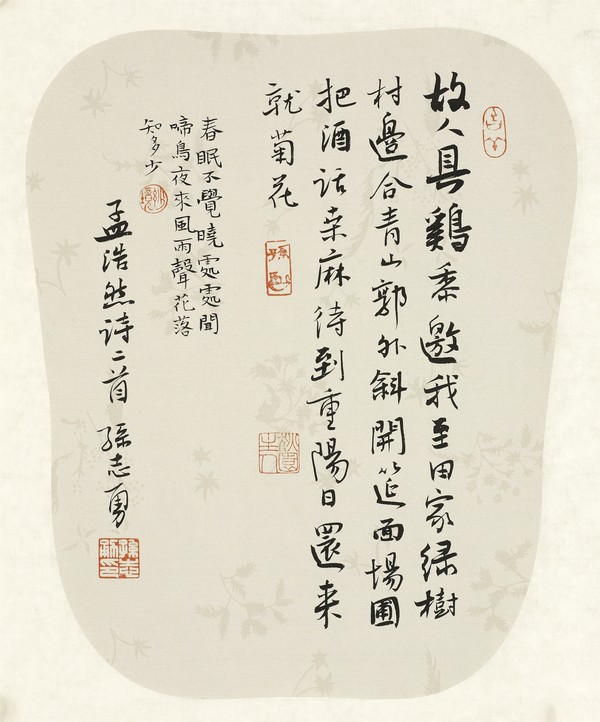 故人具鷄黍邀我至田家绿樹
村邊合青山郭外斜開筵面場圃
把酒话桒麻待到重陽日還来
就菊花
春眠不覺曉處處聞
啼鳥夜來風雨聲花落
知多少
孟浩然诗二首 孫志勇